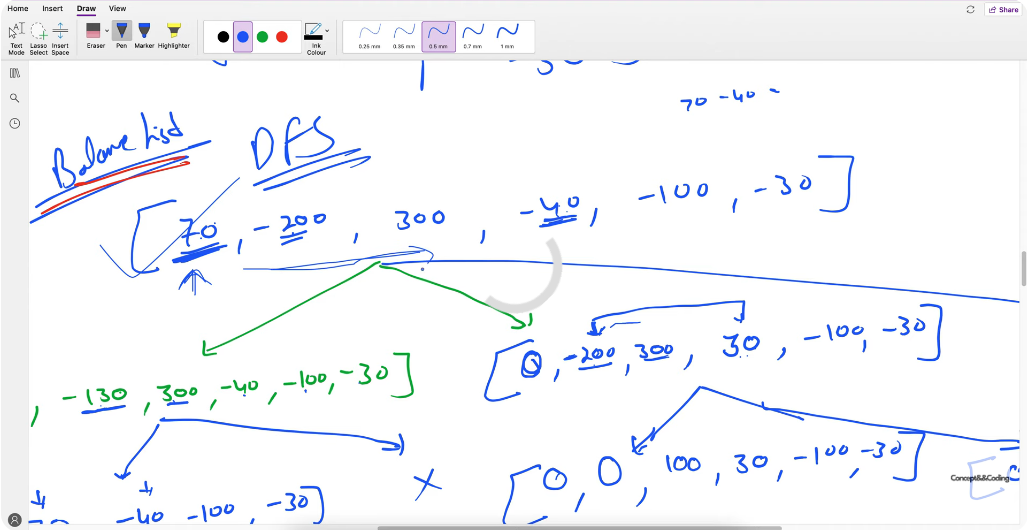 Home Insert Draw View
Share
Text Mode
Lasso Select
Insert Space
Eraser
Pen
Marker
Highlighter
Ink Colour
0.25 mm 0.35 mm 0.5 mm 0.7 mm 1 mm
70 - 40 =
Balance List
DFS
[ 70, -200, 300, -40, -100, -30 ]
[ 0, -200, 300, 30, -100, -30 ]
, -130, 300, -40, -100, -30 ]
[ 0, 0, 100, 30, -100, -30 ]
-40 -100, -30 ]
Concept&&Coding